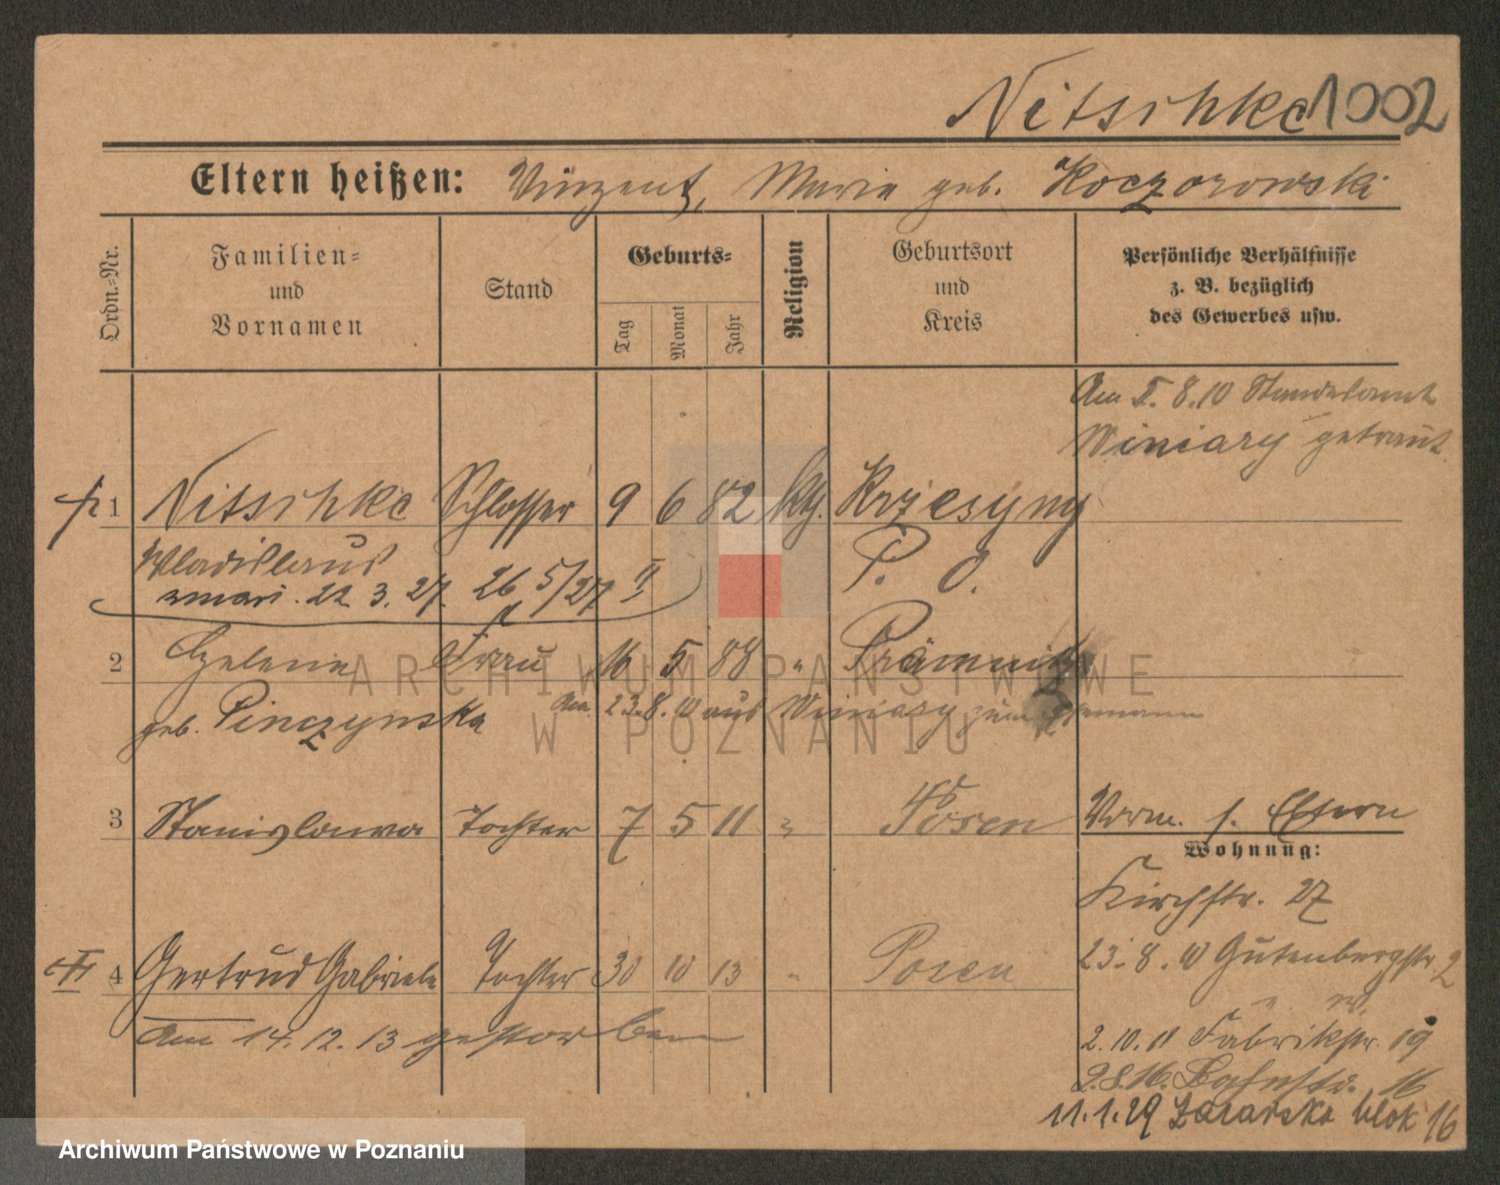 Nitschke 1002
Eltern heißen: Vinzent, Maria geb. Koczorowski
Ordn.-Nr.
Familien-
und
Vornamen
Stand
Geburts-
Tag
Monat
Jahr
Religion
Geburtsort
und
Kreis
Persönliche Verhältnisse
z. B. bezüglich
des Gewerbes usw.
Am 8.10 Standesamt
Winiary getraut
1 Nitschke Schlosser 9 6 82 kth. Krzesyny
Wladislaus P. O.
zmarł. 22. 3. 27. 26 5/27 II
2 Helene Frau 16 5 88 " Prämnitz
geb. Pinczynska Am 23.8.10 aus Winiary zum Ehemann
3 Stanislawa Tochter 7 5 11 " Posen Vorm. s. Eltern
Wohnung:
Kirchstr. 27
4 Gertrud Gabriele Tochter 30 10 13 " Posen
23.8.10 Gutenbergstr. 2
Am 14.12.13 gestorben
2.10.11 Fabrikstr. 19
2.8.16. Bahnstr. 16
11.1.29 Łazarska blok 16
ARCHIWUM PAŃSTWOWE
W POZNANIU
Archiwum Państwowe w Poznaniu